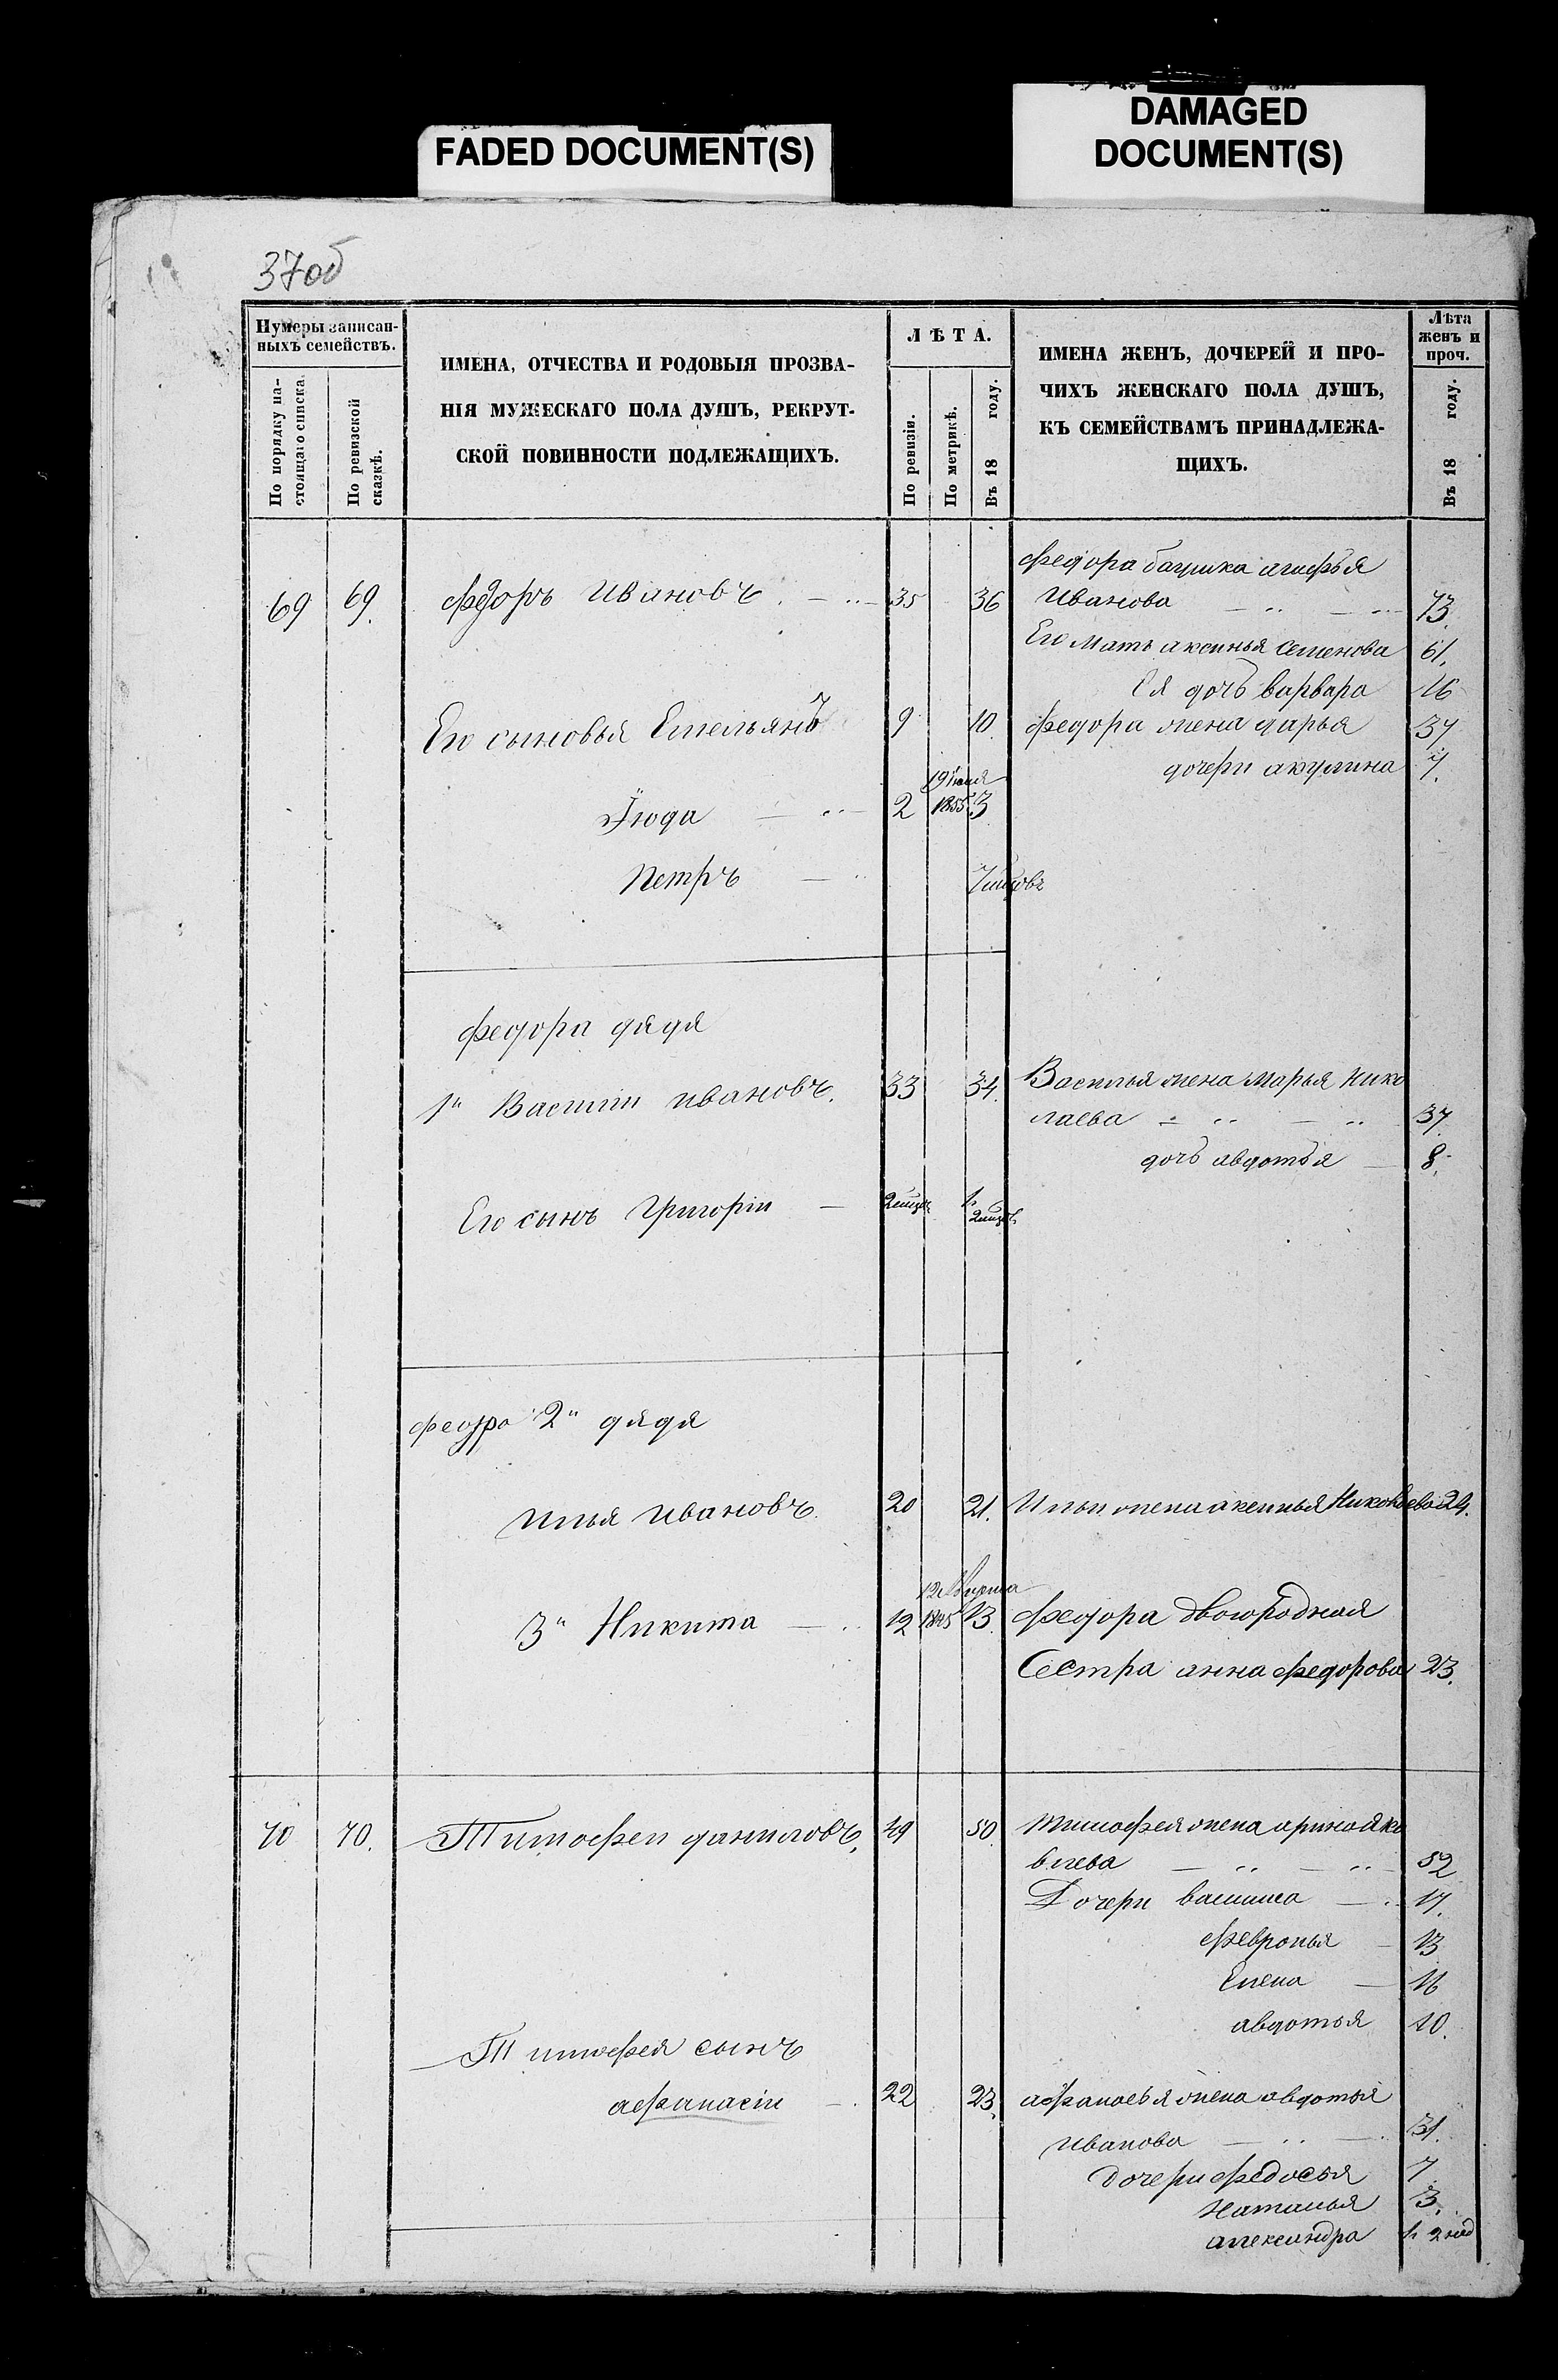 FADED DOCUMENT(S)
DAMAGED
DOCUMENT(S)
37об
Нумеры записан-
ныхъ семействъ.
По порядку на-
стоящаго списка.
По ревизской
сказкѣ.
ИМЕНА, ОТЧЕСТВА И РОДОВЫЯ ПРОЗВА-
НІЯ МУЖЕСКАГО ПОЛА ДУШЪ, РЕКРУТ-
СКОЙ ПОВИННОСТИ ПОДЛЕЖАЩИХЪ.
ЛѢТА.
По ревизіи.
По метрикѣ.
Въ 18 году.
ИМЕНА ЖЕНЪ, ДОЧЕРЕЙ И ПРО-
ЧИХЪ ЖЕНСКАГО ПОЛА ДУШЪ,
КЪ СЕМЕЙСТВАМЪ ПРИНАДЛЕЖА-
ЩИХЪ.
Лѣта
женъ и
проч.
Въ 18 году.
69 69. Федоръ Ивановъ. 35 36
Федора бабушка агафья
Иванова 73.
Его мать аксинья Семенова 61.
Ея дочь варвара 16
Его сыновья Емельянъ 9 10.
Федора жена дарья 37
дочери акулина 7.
19 июня
Июда 2 1855 3
Петръ 7 мѣсяцовъ
Федора дядя
1й Василій Ивановъ. 33 34.
Василья жена Марья Нико
лаева 37.
дочь авдотья 8.
Его сынъ Григорій 2 мѣсяц. 1. 2 мѣсяц.
Федора 2й дядя
Илья Ивановъ. 20 21.
Ильи жена аксинья 24.
3й Никита 12 1845 13.
Федора двоюродная
Сестра анна Федорова 23.
70 70. Тимофей даниловъ. 49 50.
Тимофея жена арина Яко
влева 52
Дочери василиса 17.
Февронья 13
Елена 16
авдотья 10.
Тимофея сынъ
афанасій 22 23.
афанасья жена авдотья
Иванова 31.
Дочери Федосья 7
Наталья 3.
александра 1. 2 нед